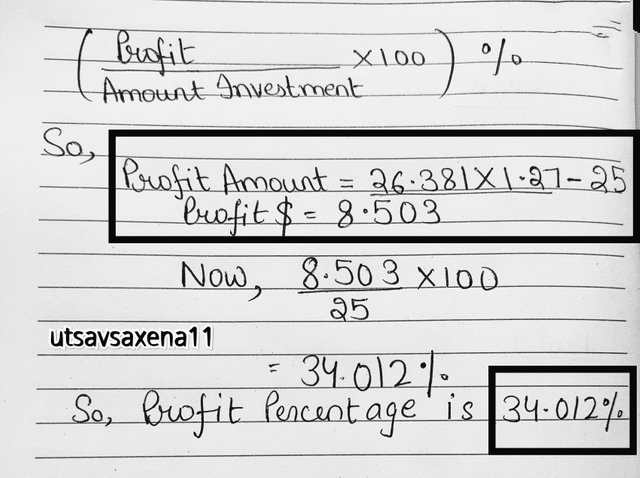 ( Profit / Amount Investment ×100 ) %
So,
Profit Amount = 26.381×1.27-25
Profit $ = 8.503
Now, 8.503 / 25 ×100
utsavsaxena11
= 34.012%
So, Profit Percentage is 34.012%